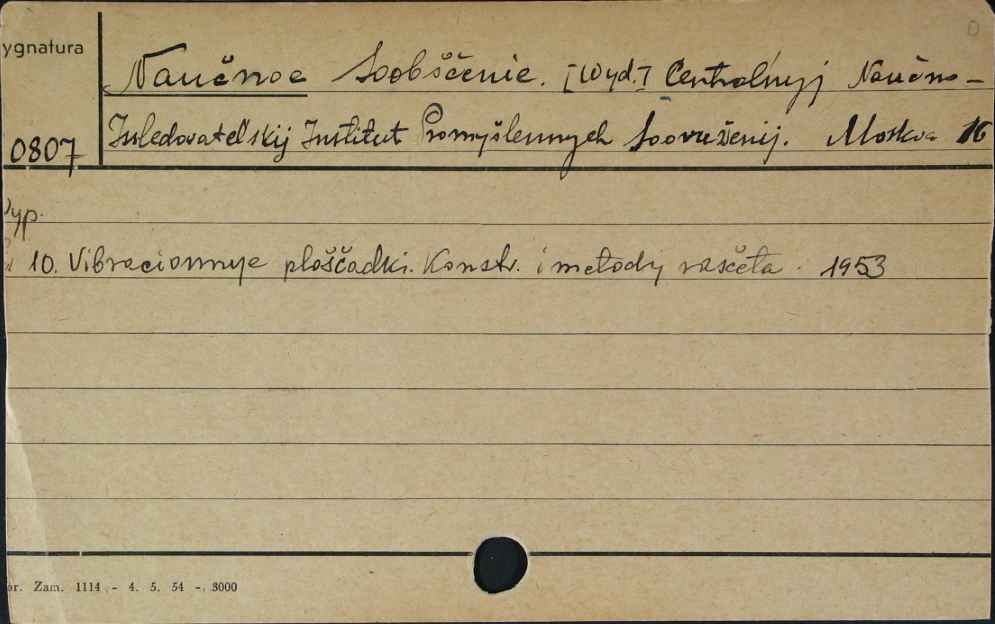 ygnatura
Naučnoe Soobščenie. [Wyd.] Centralńyj Naučno-
0807 Issledovatelskij Institut Promyšlennych Sooruženij. Moskva 16
Vyp.
10. Vibracionnye ploščadki. Konstr. i metody rasčeta. 1953
or. Zam. 1114 - 4. 5. 54 - 3000